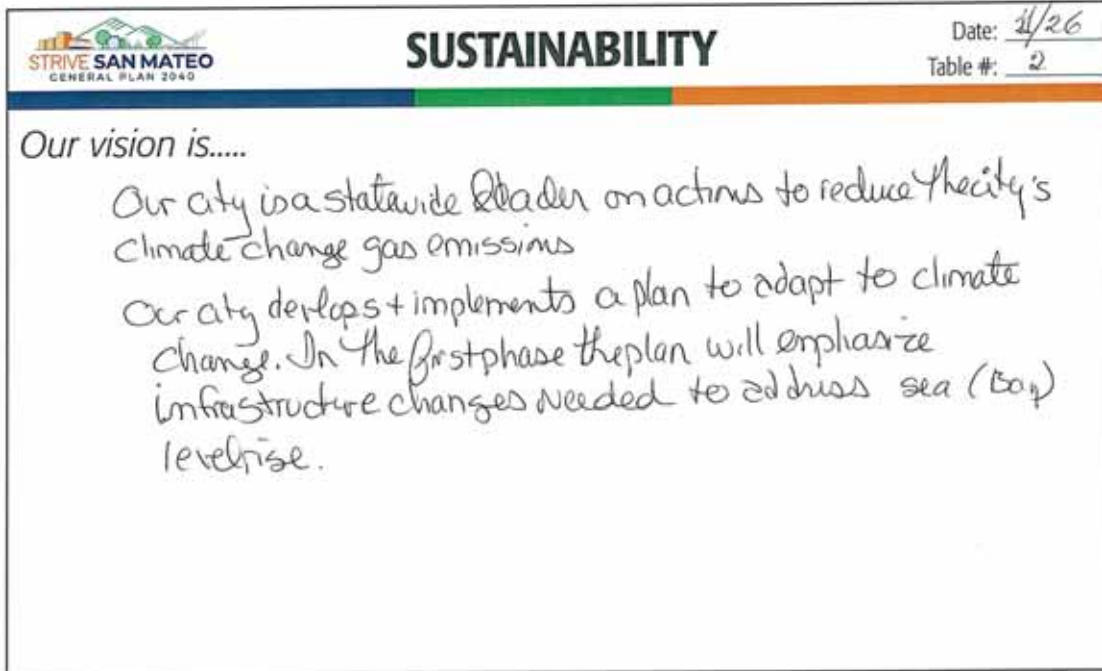 STRIVE SAN MATEO
GENERAL PLAN 2040
SUSTAINABILITY
Date: 11/26
Table #: 2
Our vision is.....
Our city is a statewide leader on actions to reduce the city's
climate change gas emissions
Our city devlops + implements a plan to adapt to climate
change. In the first phase the plan will emphasize
infrastructure changes needed to address sea (Bay)
level rise.